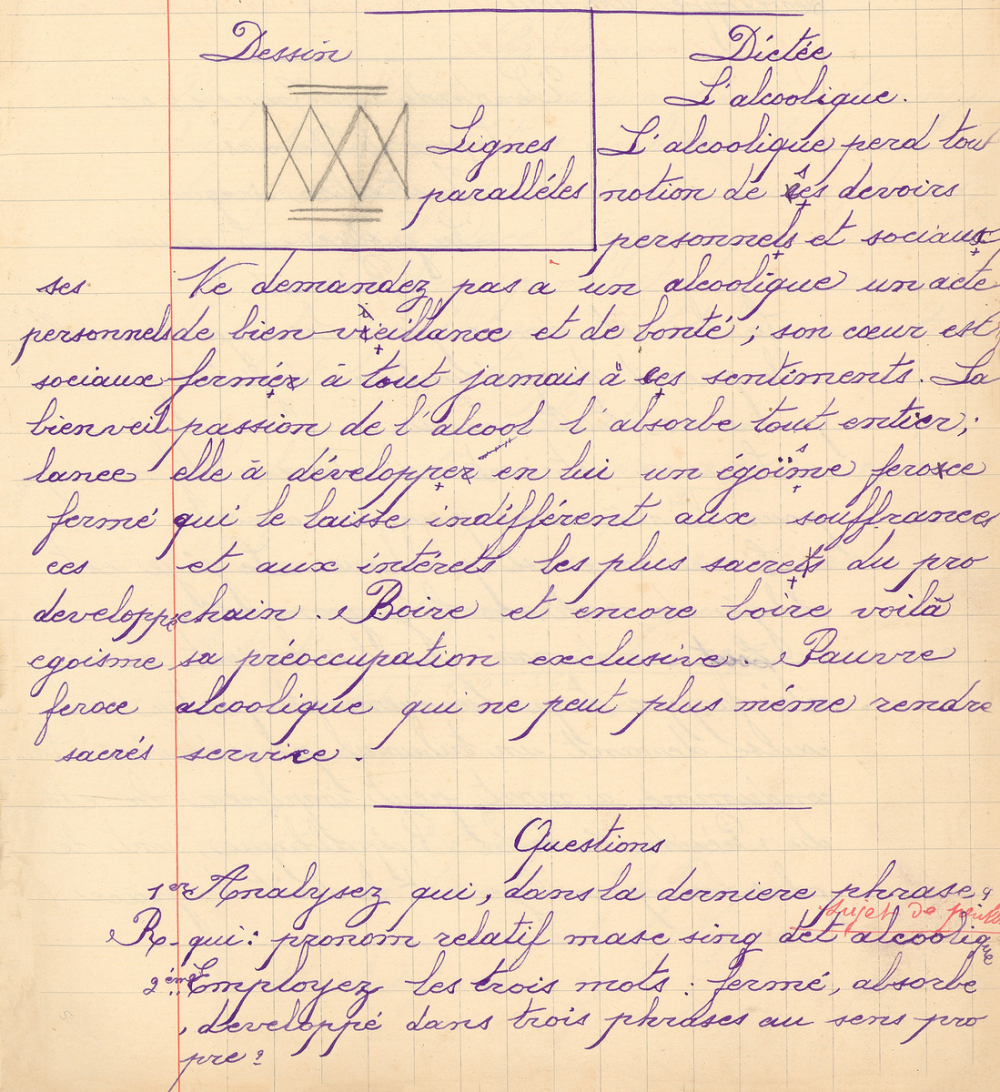 Dessin
Lignes
parallèles
Dictée
L'alcoolique.
L'alcoolique perd tout
notion de ses devoirs
personnels et sociaux
Ne demandez pas a un alcoolique un acte
de bien veillance et de bonté ; son cœur est
fermé à tout jamais à ces sentiments. La
passion de l'alcool l'absorbe tout entier ;
elle à développé en lui un égoïsme feroce
qui le laisse indifférent aux souffrances
et aux intérets les plus sacrés du pro
chain . Boire et encore boire voilà
sa préoccupation exclusive. Pauvre
alcoolique qui ne peut plus même rendre
service .
ses
personnels
sociaux
bienveil
lance
fermé
ces
developpe
egoisme
feroce
sacrés
Questions
1er Analysez qui, dans la derniere phrase ?
sujet de
R. qui : pronom relatif masc sing det alcoolique
2ème Employez les trois mots : fermé, absorbe
, developpé dans trois phrases au sens pro
pre ?